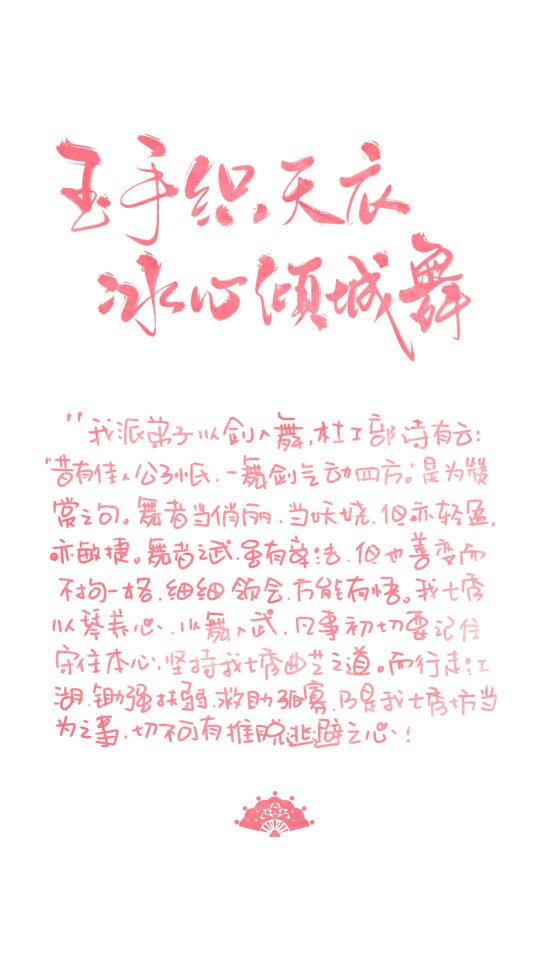 玉手织天衣
冰心倾城舞
“我派弟子以剑入舞，杜工部诗有云：
“昔有佳人公孙氏，一舞剑气动四方。”是为赞
赏之句。舞者当俏丽，当妖娆，但亦轻盈，
亦敏捷。舞者之武，虽有章法，但也善变而
不拘一格，细细领会，方能有悟。我七秀
以琴养心，以舞入武，凡事初切要记住
守住本心，坚持我七秀曲艺之道。而行走江
湖，锄强扶弱，救助孤寡，乃是我七秀坊当
为之事，切不可有推脱逃避之心！